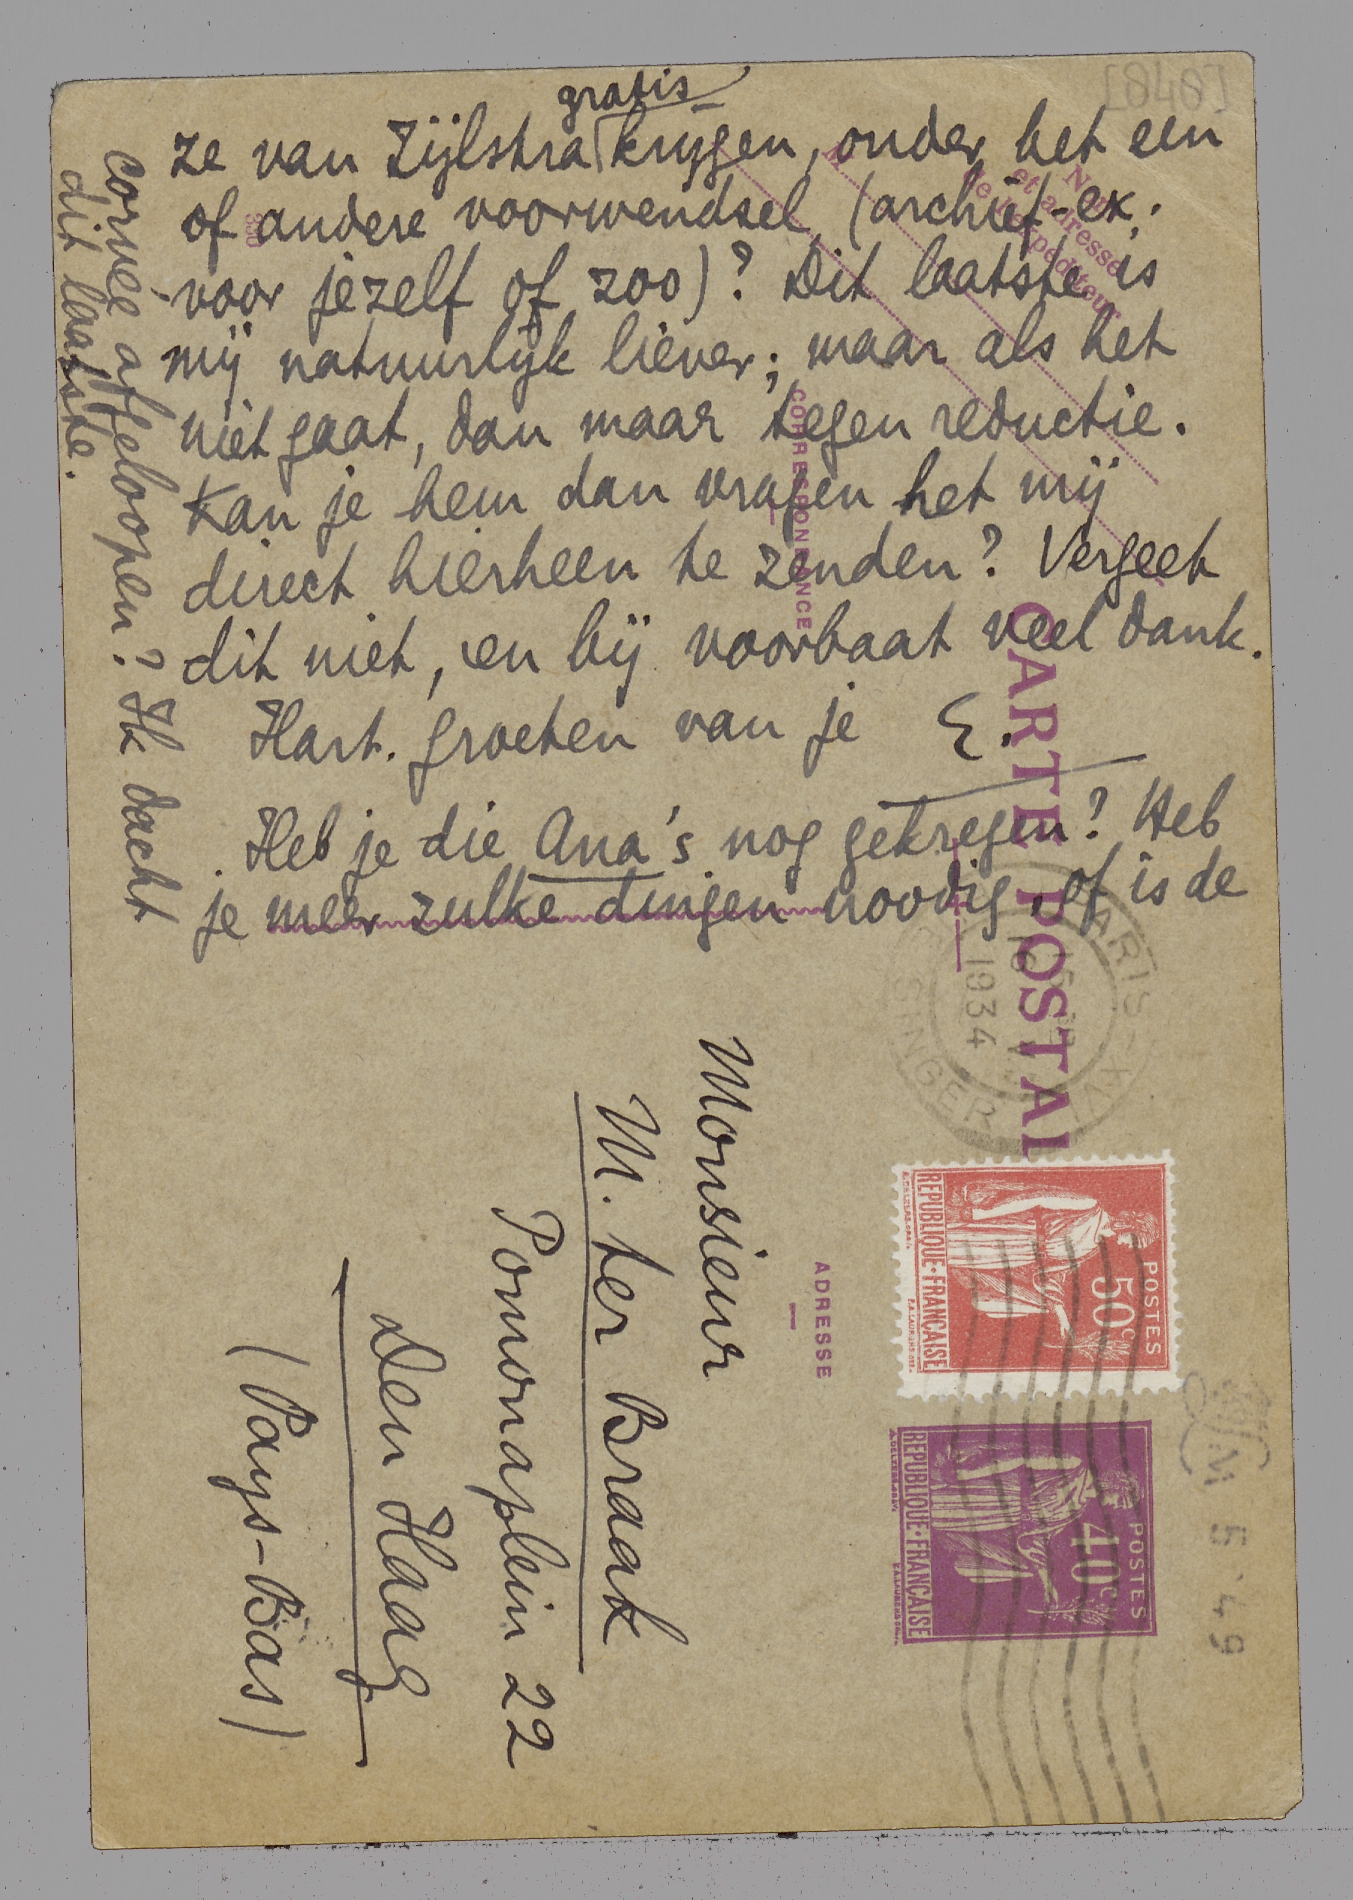 [0404]
gratis
ze van Zijlstra krijgen, onder het een
of andere voorwendsel (archief-ex;
voor jezelf of zoo)? Dit laatste is
mij natuurlijk liever; maar als het
niet gaat, dan maar tegen reductie.
Kan je hem dan vragen het mij
direct hierheen te zenden? Vergeet
dit niet, en bij voorbaat veel dank.
Hart. groeten van je E.
Heb je die Ana's nog gekregen? Heb
je meer zulke dingen noodig, of is de
corvee afgeloopen? Ik dacht
dit laatste.
CARTE POSTALE
Nom
et adresse
de l'expéditeur
CORRESPONDANCE
ADRESSE
Monsieur
M. ter Braak
Pomonaplein 22
Den Haag
(Pays-Bas)
PARIS-XVI
SINGER
1934
POSTES
50c
REPUBLIQUE·FRANÇAISE
POSTES
40c
REPUBLIQUE·FRANÇAISE
M 5 49